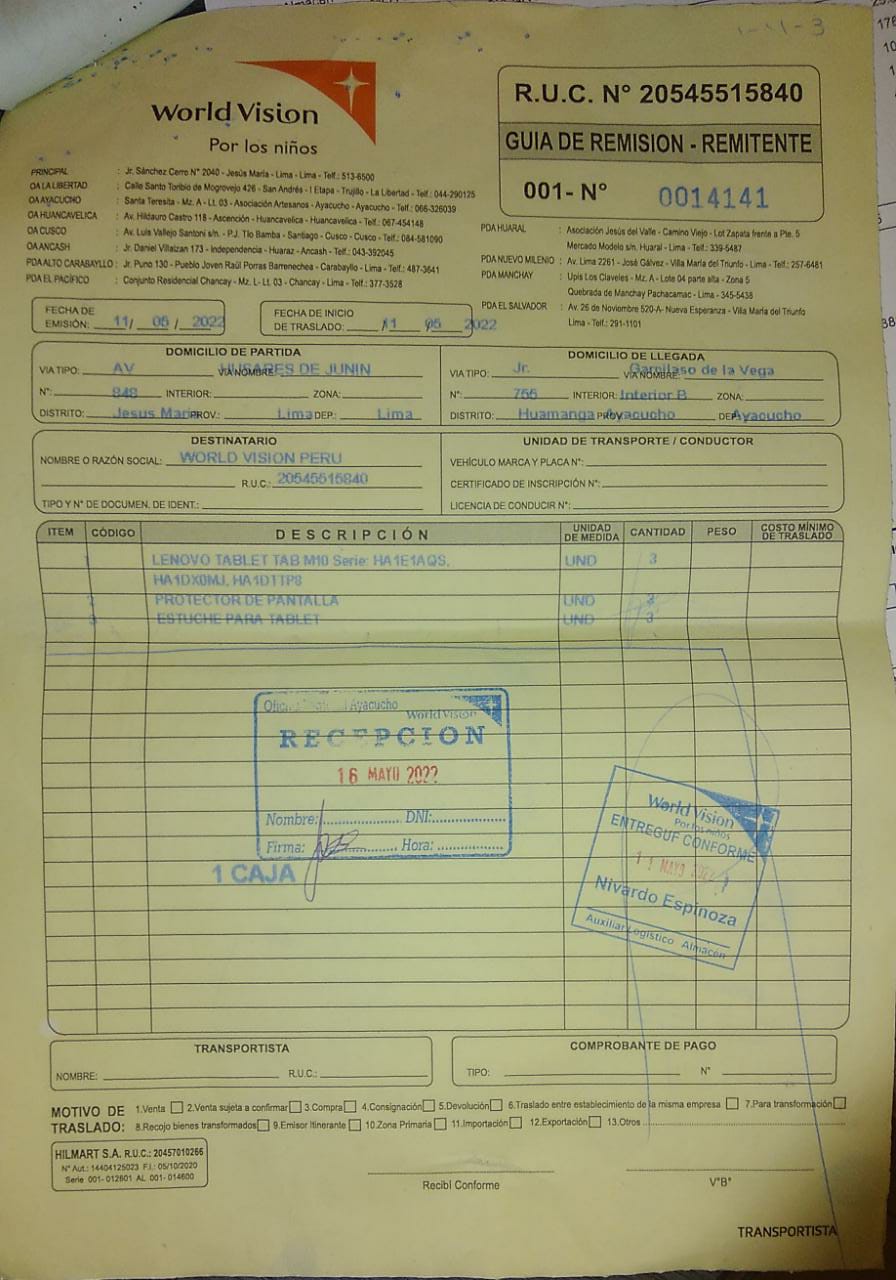 World Vision
Por los niños
R.U.C. N° 20545515840
GUIA DE REMISION - REMITENTE
001- N° 0014141
PRINCIPAL : Jr. Sánchez Cerro N° 2040 - Jesús María - Lima - Lima - Telf.: 513-6500
OA LA LIBERTAD : Calle Santo Toribio de Mogrovejo 426 - San Andrés - I Etapa - Trujillo - La Libertad - Telf.: 044-290125
OA AYACUCHO : Santa Teresita - Mz. A - Lt. 03 - Asociación Artesanos - Ayacucho - Ayacucho - Telf.: 066-326039
OA HUANCAVELICA : Av. Hildauro Castro 118 - Ascención - Huancavelica - Huancavelica - Telf.: 067-454148
OA CUSCO : Av. Luis Vallejo Santoni s/n. - P.J. Tío Bamba - Santiago - Cusco - Cusco - Telf.: 084-581090
OA ANCASH : Jr. Daniel Villaizan 173 - Independencia - Huaraz - Ancash - Telf.: 043-392045
PDA ALTO CARABAYLLO : Jr. Puno 130 - Pueblo Joven Raúl Porras Barrenechea - Carabayllo - Lima - Telf.: 487-3641
PDA EL PACÍFICO : Conjunto Residencial Chancay - Mz. L - Lt. 03 - Chancay - Lima - Telf.: 377-3528
PDA HUARAL : Asociación Jesús del Valle - Camino Viejo - Lot Zapata frente a Pte. 5
Mercado Modelo s/n. Huaral - Lima - Telf.: 339-5487
PDA NUEVO MILENIO : Av. Lima 2261 - José Gálvez - Villa María del Triunfo - Lima - Telf.: 257-6481
PDA MANCHAY : Upis Los Claveles - Mz. A - Lote 04 parte alta - Zona 5
Quebrada de Manchay Pachacamac - Lima - 345-5438
PDA EL SALVADOR : Av. 26 de Noviembre 520-A- Nueva Esperanza - Villa María del Triunfo
Lima - Telf.: 291-1101
FECHA DE EMISIÓN: 11/ 05 / 2022
FECHA DE INICIO DE TRASLADO: 11 05 2022
DOMICILIO DE PARTIDA
VIA TIPO: AV VIA NOMBRE: HUSARES DE JUNIN
N°: 848 INTERIOR: ZONA:
DISTRITO: Jesus Maria PROV.: Lima DEP.: Lima
DOMICILIO DE LLEGADA
VIA TIPO: Jr. VIA NOMBRE: Garcilaso de la Vega
N°: 755 INTERIOR: Interior B ZONA:
DISTRITO: Huamanga PROV Ayacucho DEP Ayacucho
DESTINATARIO
NOMBRE O RAZÓN SOCIAL: WORLD VISION PERU
R.U.C.: 20545515840
TIPO Y N° DE DOCUMEN. DE IDENT.:
UNIDAD DE TRANSPORTE / CONDUCTOR
VEHÍCULO MARCA Y PLACA N°:
CERTIFICADO DE INSCRIPCIÓN N°:
LICENCIA DE CONDUCIR N°:
ITEM CÓDIGO DESCRIPCIÓN UNIDAD DE MEDIDA CANTIDAD PESO COSTO MÍNIMO DE TRASLADO
1 LENOVO TABLET TAB M10 Serie: HA1E1AQS, UND 3
HA1DX0MJ, HA1DTTP8
2 PROTECTOR DE PANTALLA UND
3 ESTUCHE PARA TABLET UND 3
Ayacucho
World Vision
RECEPCION
16 MAYO 2022
Nombre: DNI:
Firma: Hora:
1 CAJA
World Vision
Por los niños
ENTREGUE CONFORME
11 MAYO
Nivardo Espinoza
Auxiliar Logístico Almacén
TRANSPORTISTA
NOMBRE: R.U.C.:
COMPROBANTE DE PAGO
TIPO: N°
MOTIVO DE TRASLADO:
1.Venta 2.Venta sujeta a confirmar 3.Compra 4.Consignación 5.Devolución 6.Traslado entre establecimiento de la misma empresa 7.Para transformación
8.Recojo bienes transformados 9.Emisor Itinerante 10.Zona Primaria 11.Importación 12.Exportación 13.Otros
HILMART S.A. R.U.C.: 20457010266
N° Aut.: 14404125023 F.I.: 05/10/2020
Serie 001- 012601 AL 001- 014600
Recibí Conforme
V°B°
TRANSPORTISTA